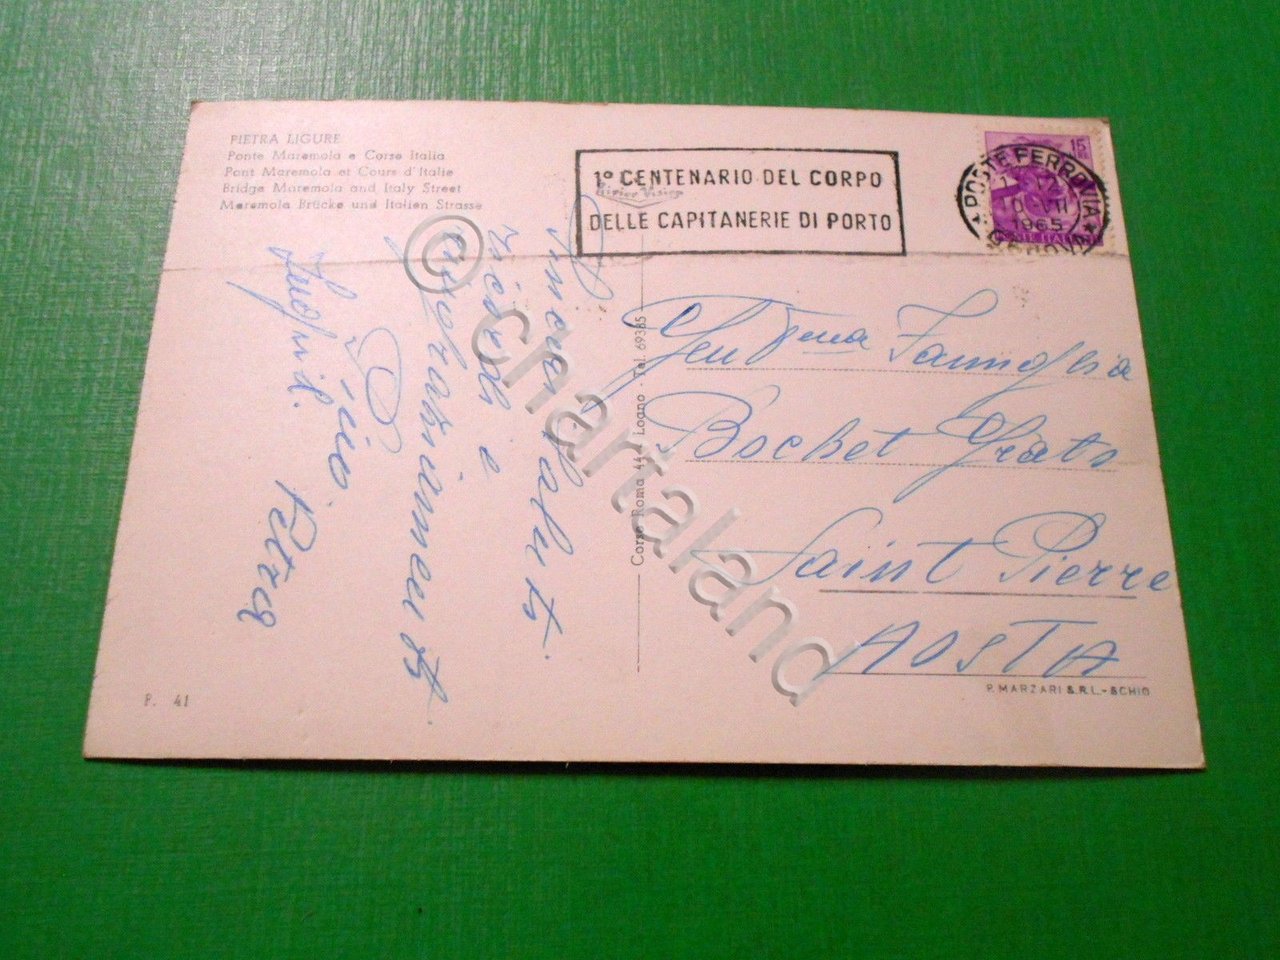 PIETRA LIGURE
Ponte Maremola e Corso Italia
Pont Maremola et Cours d'Italie
Bridge Maremola and Italy Street
Maremola Brücke und Italien Strasse
1º CENTENARIO DEL CORPO
DELLE CAPITANERIE DI PORTO
POSTE FERROVIA
1965
15
Corso Roma 44 - Loano - Tel. 69385
Famiglia
Bochet Grato
Saint Pierre
AOSTA
P. MARZARI S.R.L. - SCHIO
P. 41
Saluti
ricordi e
© Chartaland